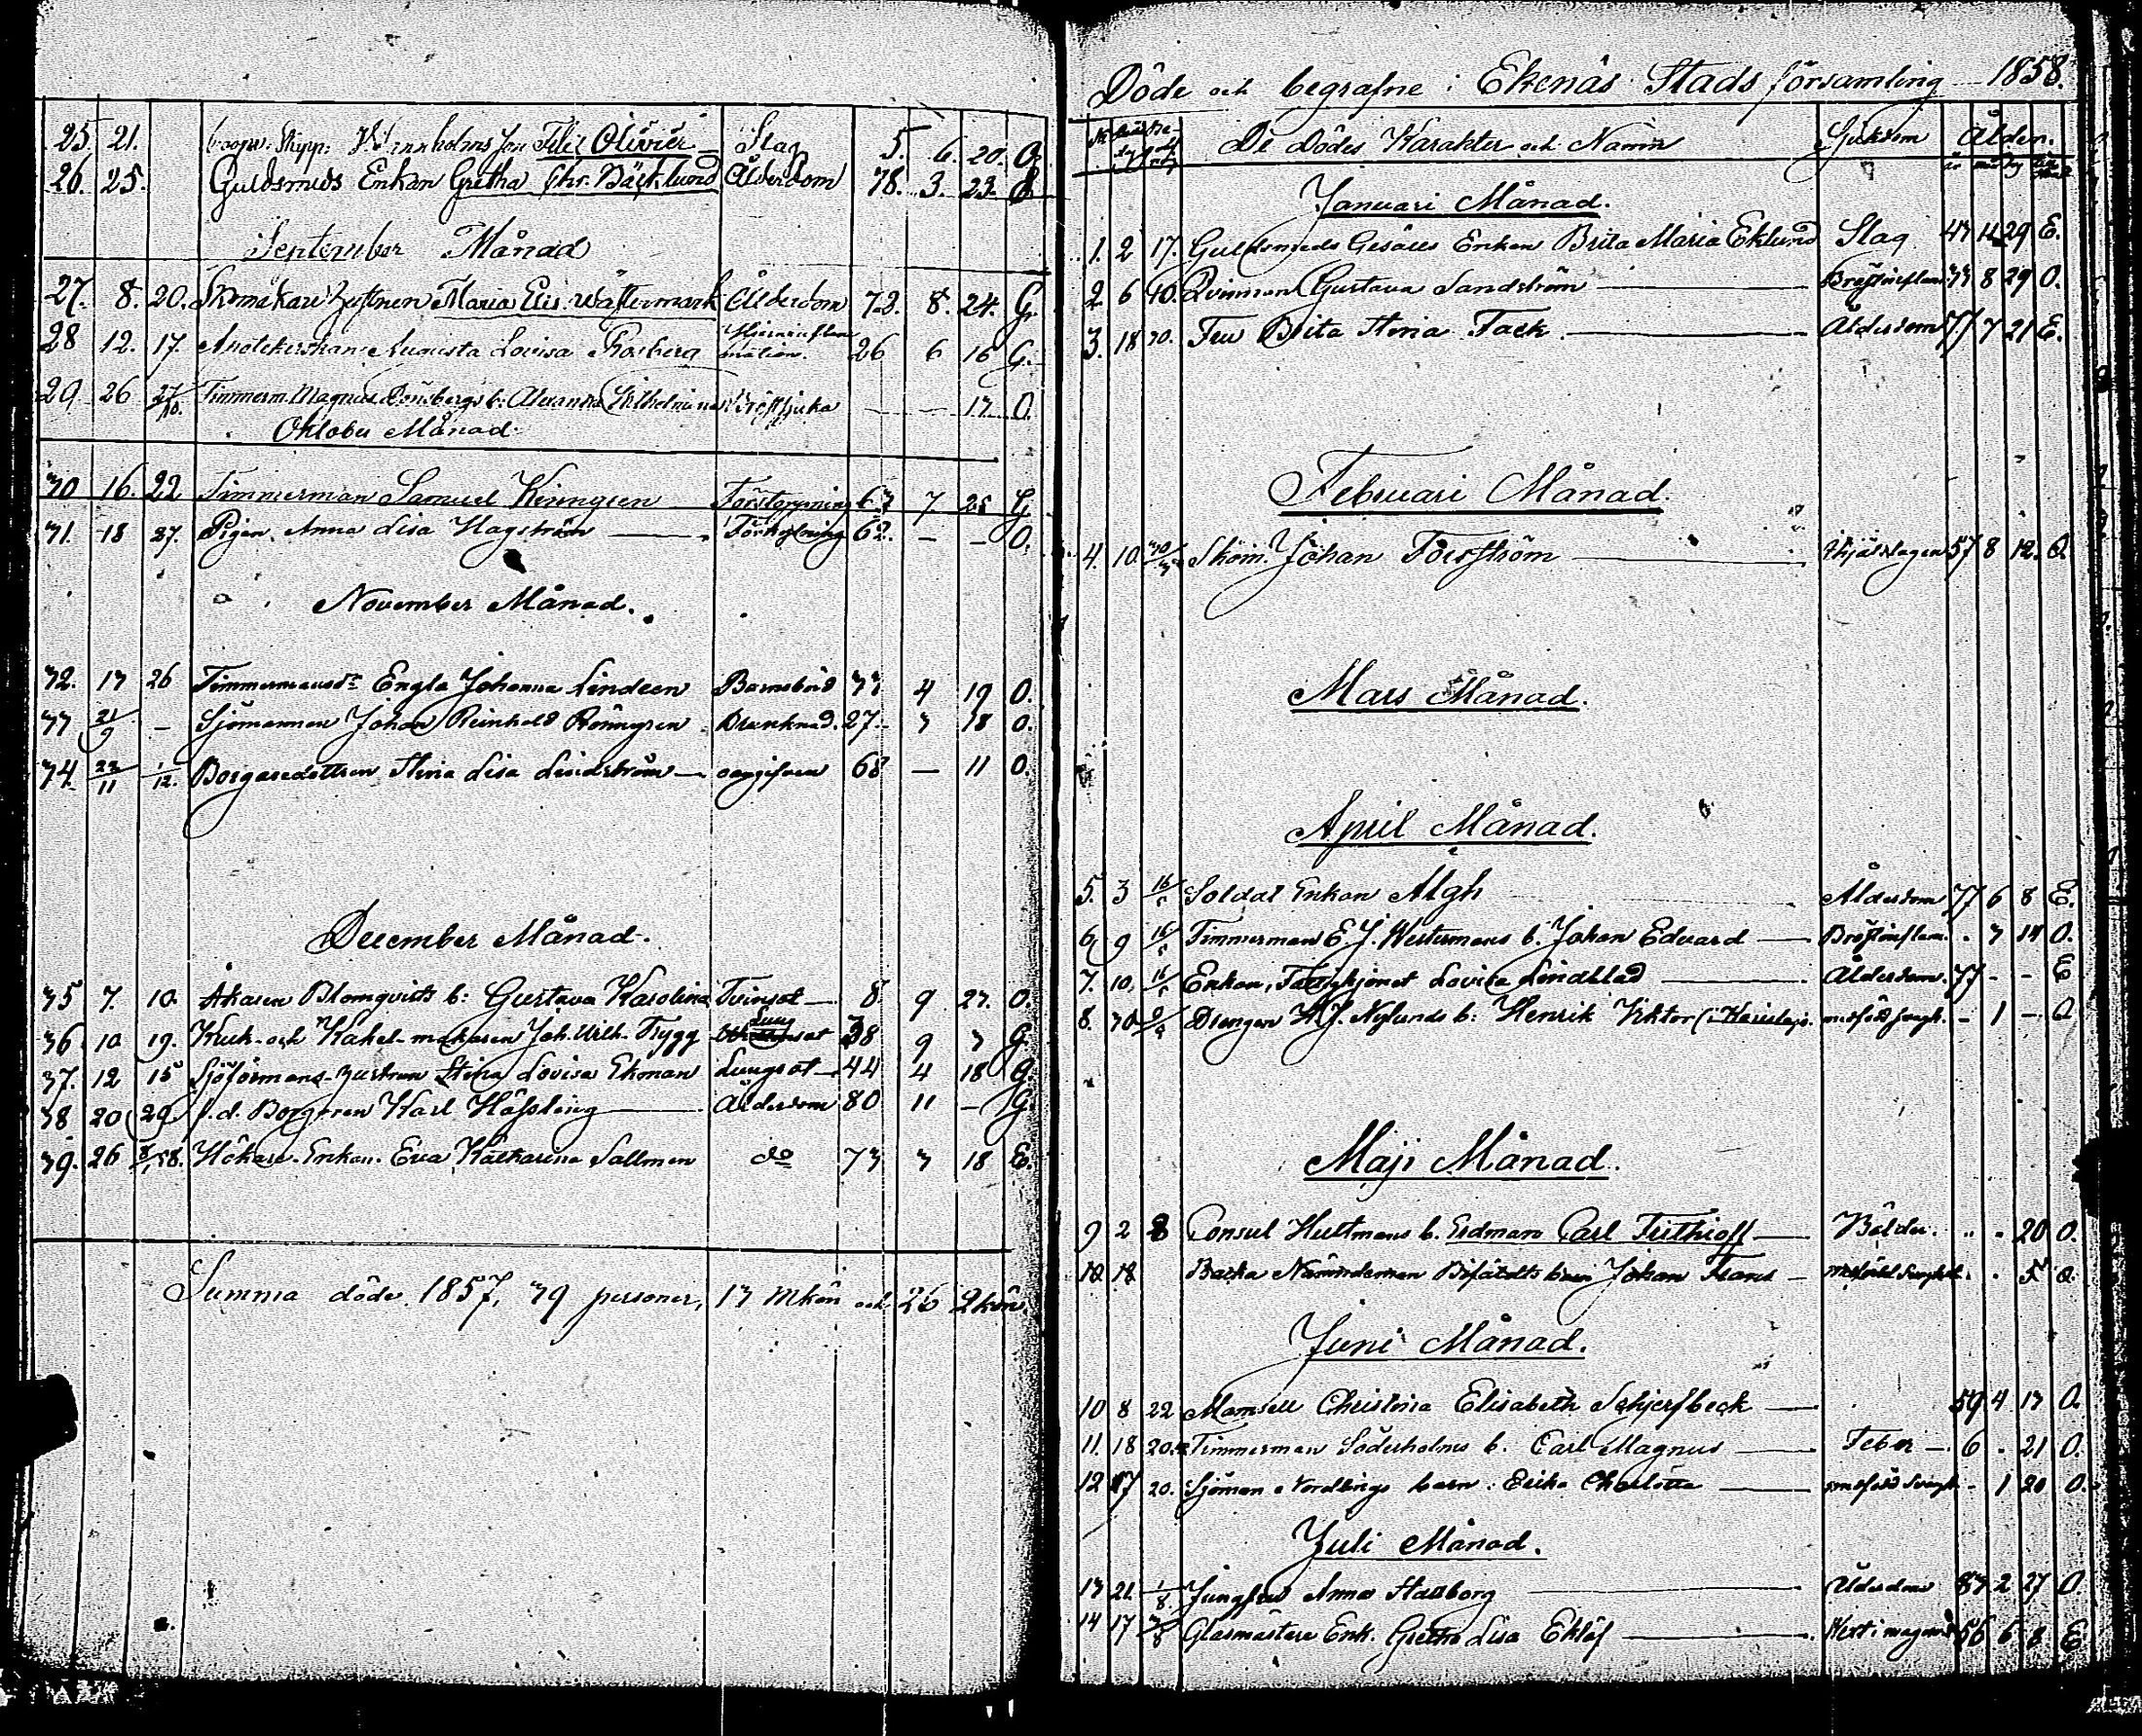 25. 21. Skipp: Son Felix Olivier Slag 5. 6. 20. O.
26. 25. Guldsmeds Enkan Gretha Chr. Bäcklund Ålderdom 78. 3. 23. E.
September Månad
27. 8. 20. Skomakare Hustrun Maria Elis. Wäster­mark Ålderdom 72. 8. 24. G.
28 12. 17. Augusta Lovisa Rosberg 26 6 16 G.
29 26 27/10. Timmerm. Magnus b: Alexandra Wilhelmina Bröstsjuka — — 13 O.
Oktober Månad
30 16. 22 Timmerman Samuel Förstoppning 63 7 25 G
31. 18 27. Pigan Anna Lisa Hagström Förkylning 62. — — O.
November Månad.
32. 13 26 Engla Johanna Lindeen Barnsbörd 33 4 19 O.
33 21/9 — Sjömannen Johan Reinhold Rönngren Drunknad. 27. 3 18 O.
34. 22/11 1/12. Borgaredottren Stina Lisa Lindström oangifven 68 — 11 O.
December Månad.
35 7. 10. Åkaren Blomqvists b: Gustava Karolina Tvinsot 8 9 27. O.
36 10 19. Kruk- och Kakel-makaren Joh. Wilh. Trygg Lungsot 38 9 3 G.
37. 12 15 Sjöförmans-Hustrun Stina Lovisa Ekman Lungsot 44 4 18 G.
38 20 29 f.d. Borgaren Karl Hässling Ålderdom 80 11 — G.
39. 26 3/1 58. Hökare-Enkan Eva Katharina Sallmen do 73 3 18 E.
Summa döde 1857, 39 personer, 13 Mkön och 26 Qkön.
Döde och begrafne i Ekenäs Stads församling 1858.
De Dödes Karakter och Namn Sjukdom Ålder.
Januari Månad.
1. 2 17. Guldsmeds Gesälls Enkan Brita Maria Eklund Slag 43 11 29 E.
2 6 10. Qvinnan Gustava Sandström Bröstinflam. 33 8 29 O.
3. 18 30. Fru Brita Stina Tack Ålderdom 77 7 21 E.
Februari Månad.
4. 10. Skom. Johan Forsström Ihjälslagen 57 8 12. O.
Mars Månad.
April Månad.
5. 3 16/5 Soldat Enkan Algh Ålderdom 77 6 8 E.
6 9 16/5 Timmerman E J. Westermans b. Johan Edvard Bröstinflam. . 3 14 O.
7. 10, 16/5 Enkan, Fattighjonet Lovisa Lindblad Ålderdom. 77 - - E
8. 30 Drengen H J. Nylunds b: Henrik Viktor (i Karislojo. medfödd svagh. - 1 - O
Maji Månad.
9 2 8 Consul Hultmans b. Erdman Carl Frithioff Bölder. „ „ 20 O.
10. 12 Backa Nämndeman barn Johan Frans medfödd Svaghet . . 5 O.
Juni Månad.
10 8 22 Mamsell Christina Elisabeth Schjerfbeck 59 4 13 O.
11. 18 20. Timmerman Söderholms b. Carl Magnus Feber 6 - 21 O.
12 17 20. Sjöman Nordlings barn: Erika Charlotta medfödd Svagh - 1 20 O.
Juli Månad.
13 21. 1/8. Jungfru Anna Stadborg Ålderdom 83 2 27 O
14 17 Glasmästare Enk. Gretha Lisa Eklöf 56 6 8 E